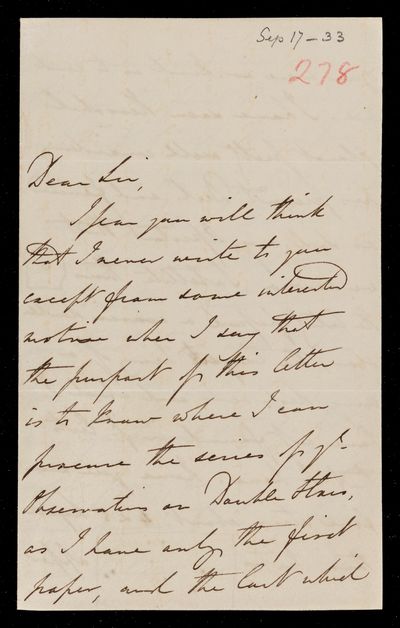 Sep 17 - 33
278
Dear Sir,
I fear you will think
that I never write to you
except from some interested
motive when I say that
the purport of this letter
is to know where I can
procure the series of yr.
Observations on Double Stars,
as I have only the first
paper, and the last which